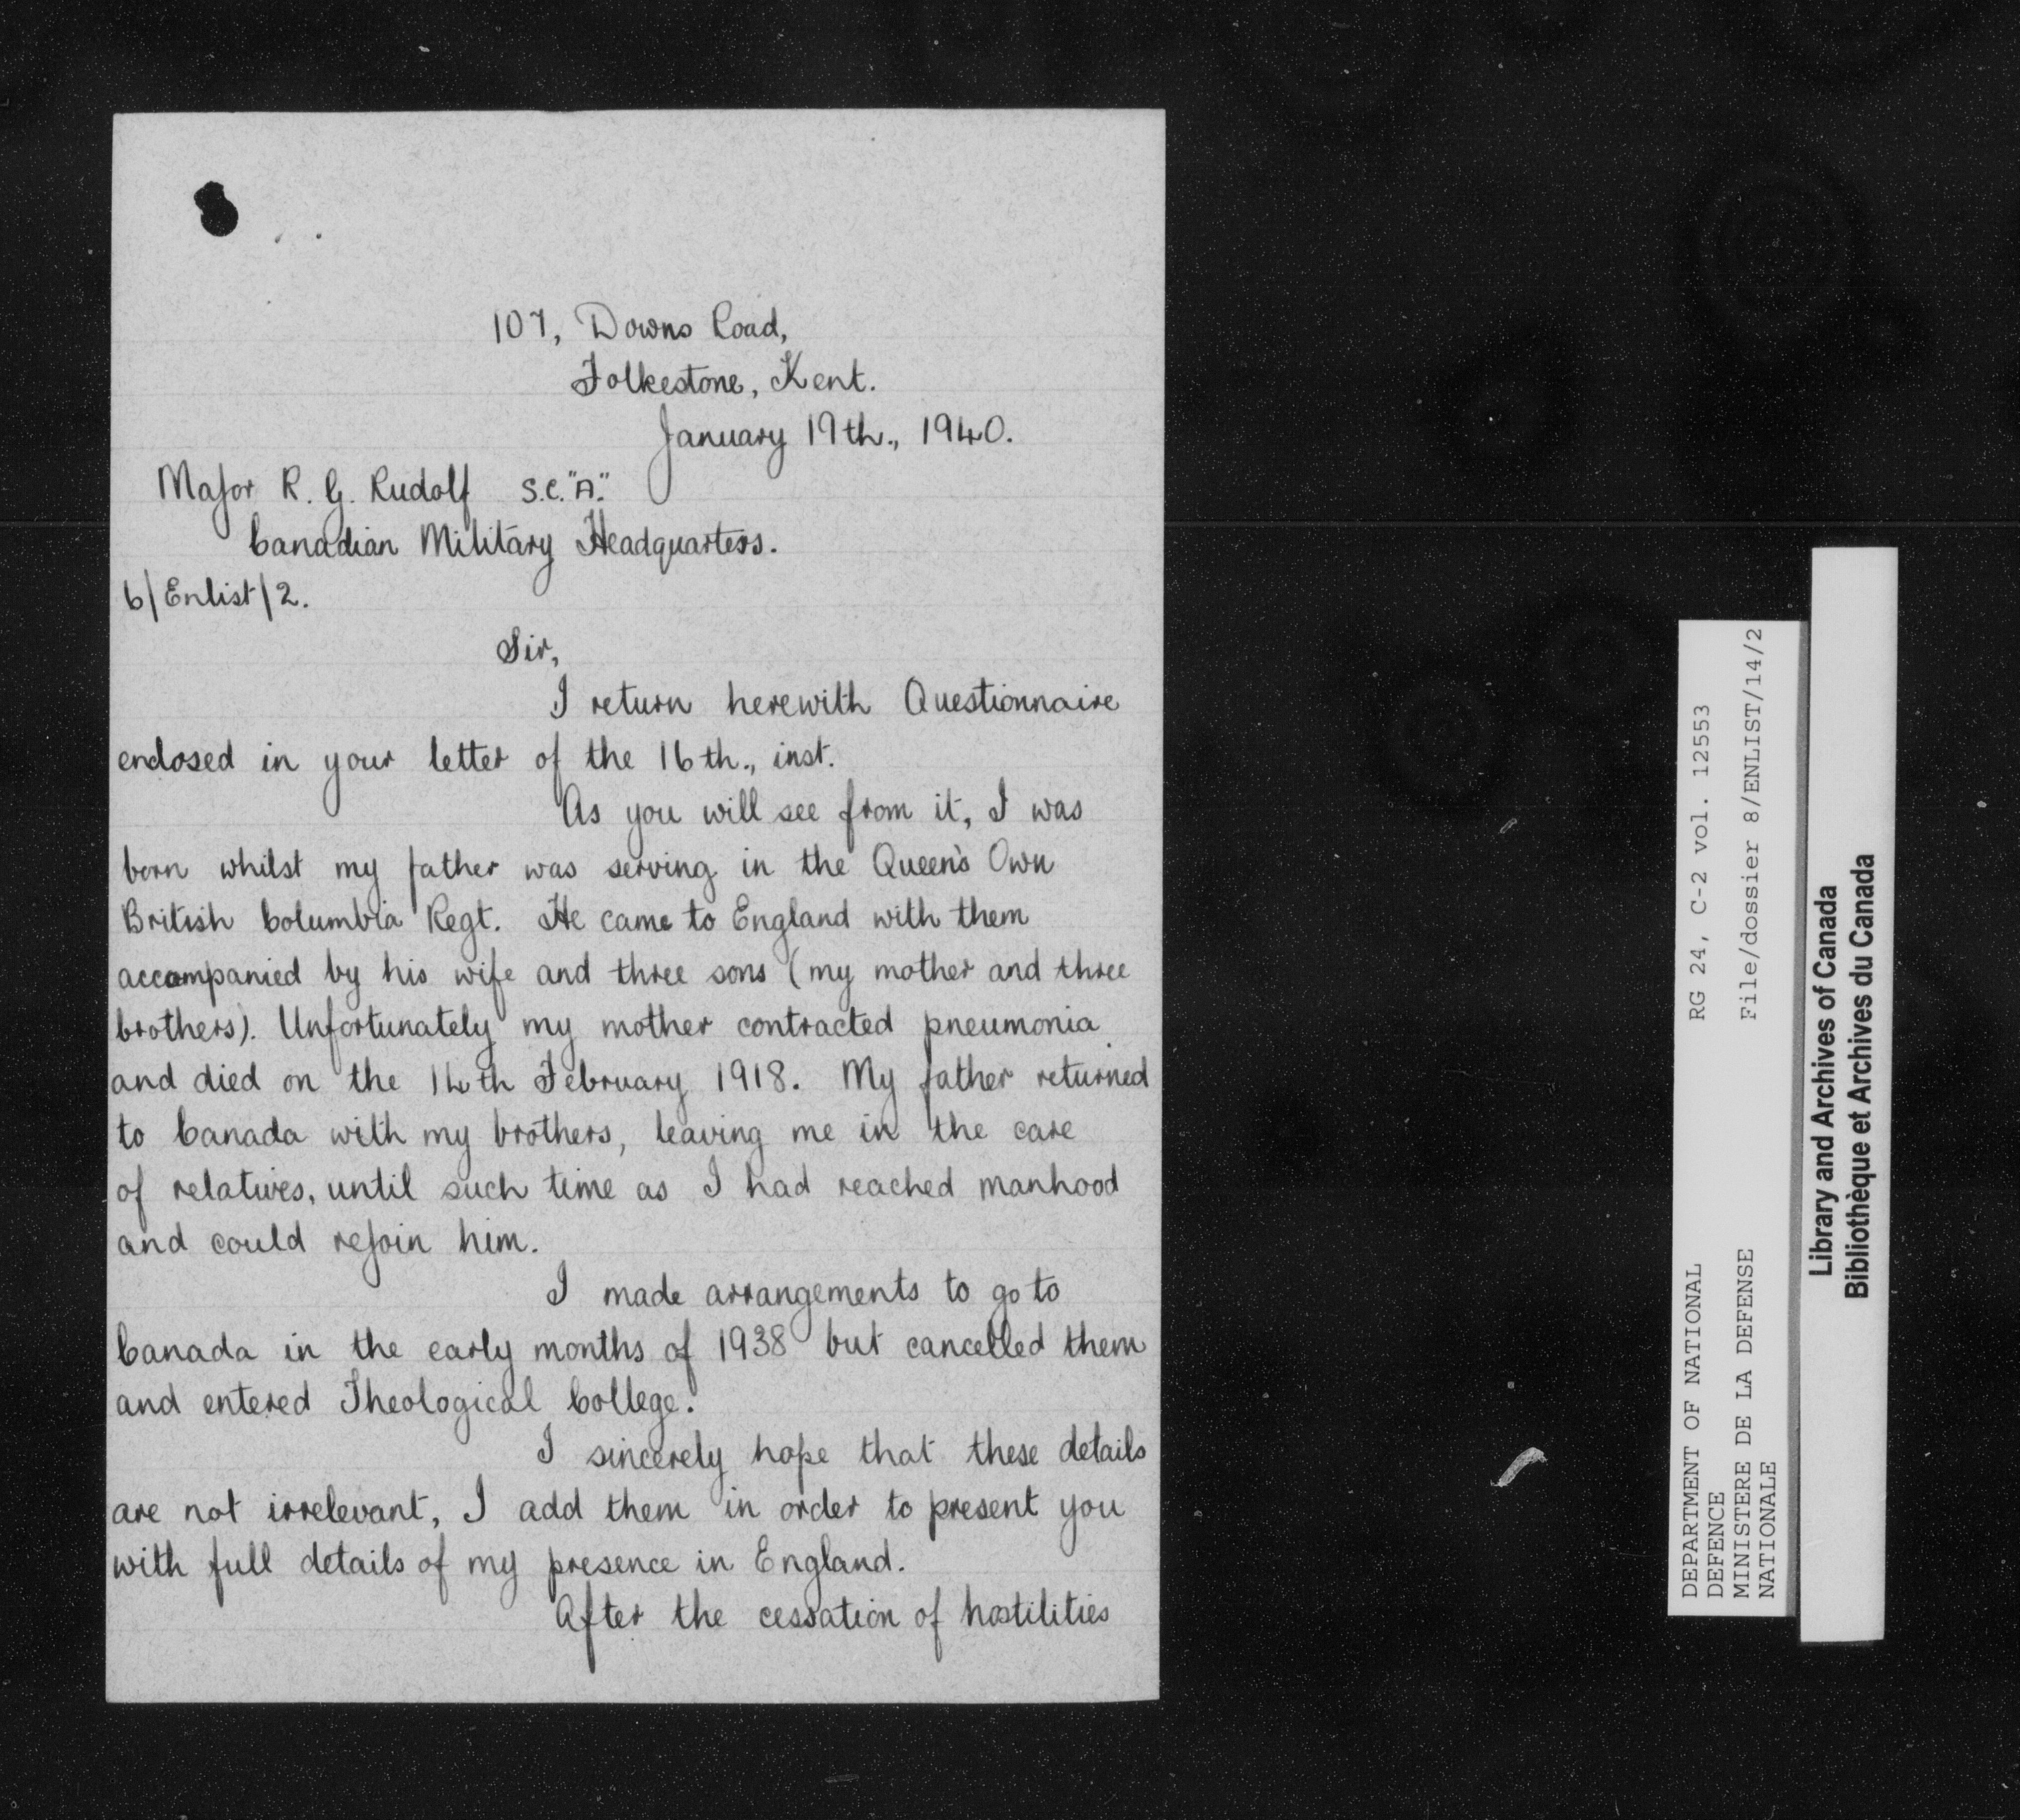 107, Downs Road,
Folkestone, Kent.
January 19th., 1940.
Major R. G. Rudolf S.C."A."
Canadian Military Headquarters.
6/Enlist/2.
Sir,
I return herewith Questionnaire
enclosed in your letter of the 16th., inst.
As you will see from it, I was
born whilst my father was serving in the Queen's Own
British Columbia Regt. He came to England with them
accompanied by his wife and three sons (my mother and three
brothers). Unfortunately my mother contracted pneumonia
and died on the 14th February 1918. My father returned
to Canada with my brothers, leaving me in the care
of relatives, until such time as I had reached manhood
and could rejoin him.
I made arrangements to go to
Canada in the early months of 1938 but cancelled them
and entered Theological College.
I sincerely hope that these details
are not irrelevant, I add them in order to present you
with full details of my presence in England.
After the cessation of hostilities
DEPARTMENT OF NATIONAL RG 24, C-2 vol. 12553
DEFENCE
MINISTERE DE LA DEFENSE File/dossier 8/ENLIST/14/2
NATIONALE
Library and Archives of Canada
Bibliothèque et Archives du Canada